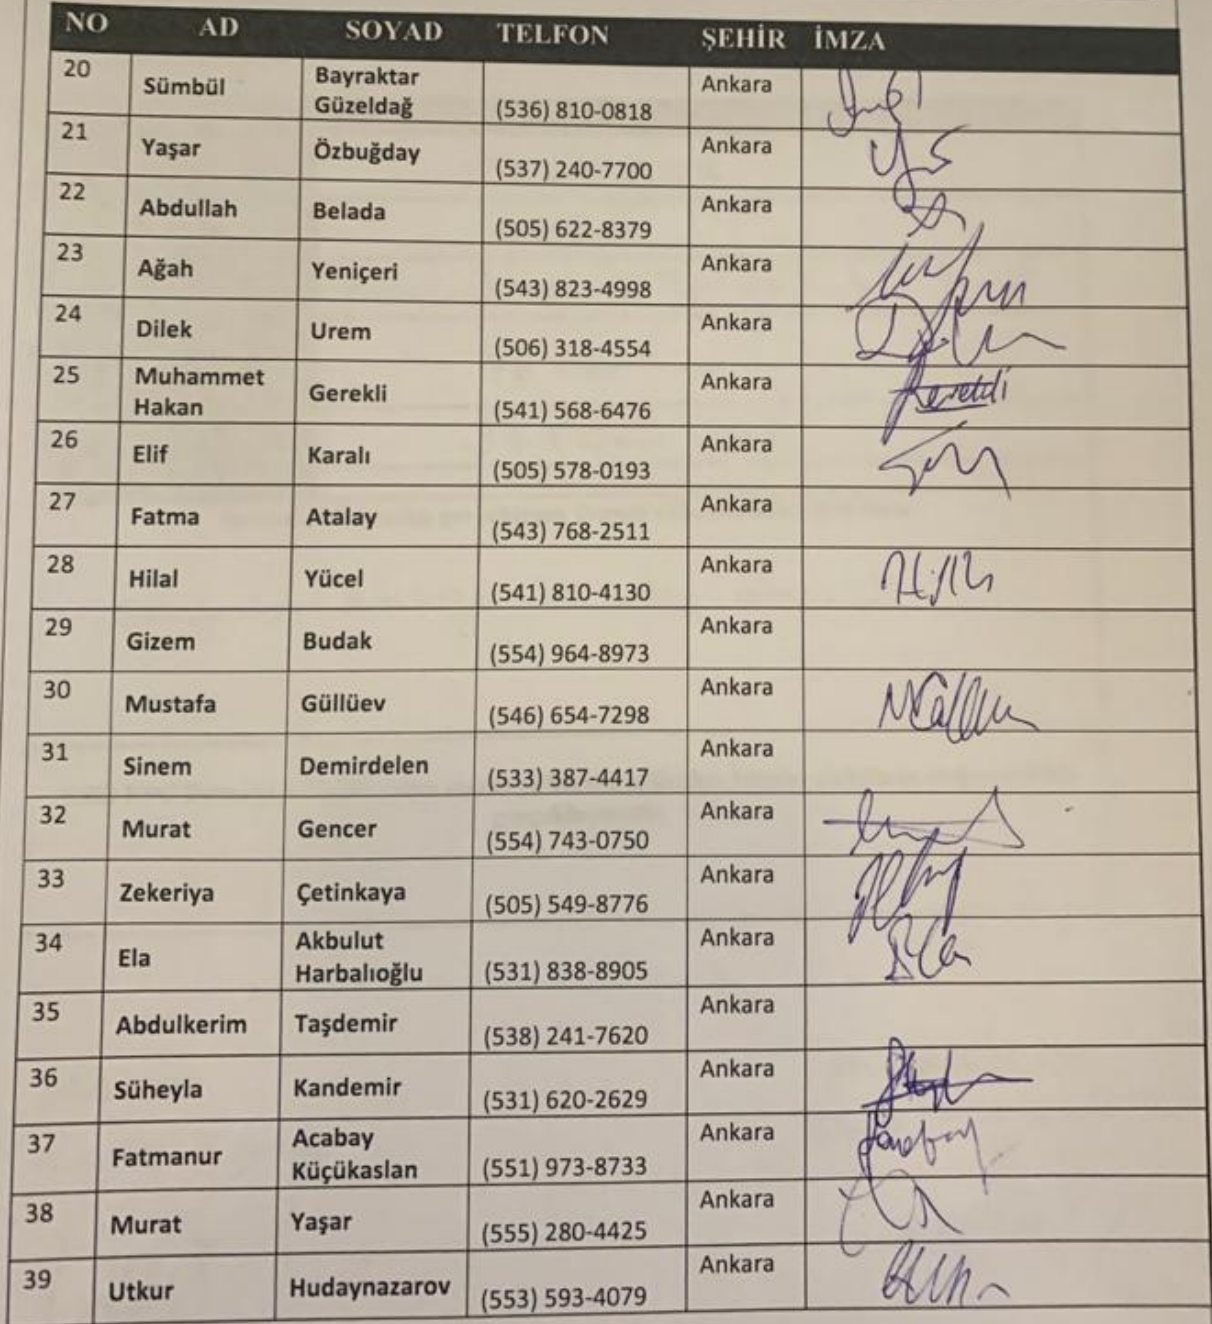 NO AD SOYAD TELFON ŞEHİR İMZA
20 Sümbül Bayraktar Güzeldağ (536) 810-0818 Ankara
21 Yaşar Özbuğday (537) 240-7700 Ankara
22 Abdullah Belada (505) 622-8379 Ankara
23 Ağah Yeniçeri (543) 823-4998 Ankara
24 Dilek Urem (506) 318-4554 Ankara
25 Muhammet Hakan Gerekli (541) 568-6476 Ankara
26 Elif Karalı (505) 578-0193 Ankara
27 Fatma Atalay (543) 768-2511 Ankara
28 Hilal Yücel (541) 810-4130 Ankara
29 Gizem Budak (554) 964-8973 Ankara
30 Mustafa Güllüev (546) 654-7298 Ankara
31 Sinem Demirdelen (533) 387-4417 Ankara
32 Murat Gencer (554) 743-0750 Ankara
33 Zekeriya Çetinkaya (505) 549-8776 Ankara
34 Ela Akbulut Harbalıoğlu (531) 838-8905 Ankara
35 Abdulkerim Taşdemir (538) 241-7620 Ankara
36 Süheyla Kandemir (531) 620-2629 Ankara
37 Fatmanur Acabay Küçükaslan (551) 973-8733 Ankara
38 Murat Yaşar (555) 280-4425 Ankara
39 Utkur Hudaynazarov (553) 593-4079 Ankara